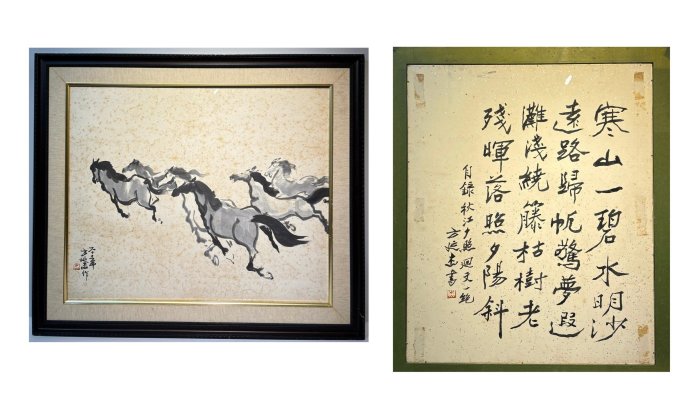 寒山一碧水明沙
遠路歸帆驚夢遐
灘淺繞籐枯樹老
殘暉落照夕陽斜
自錄秋江夕照迴文一絕
方 書
方 作